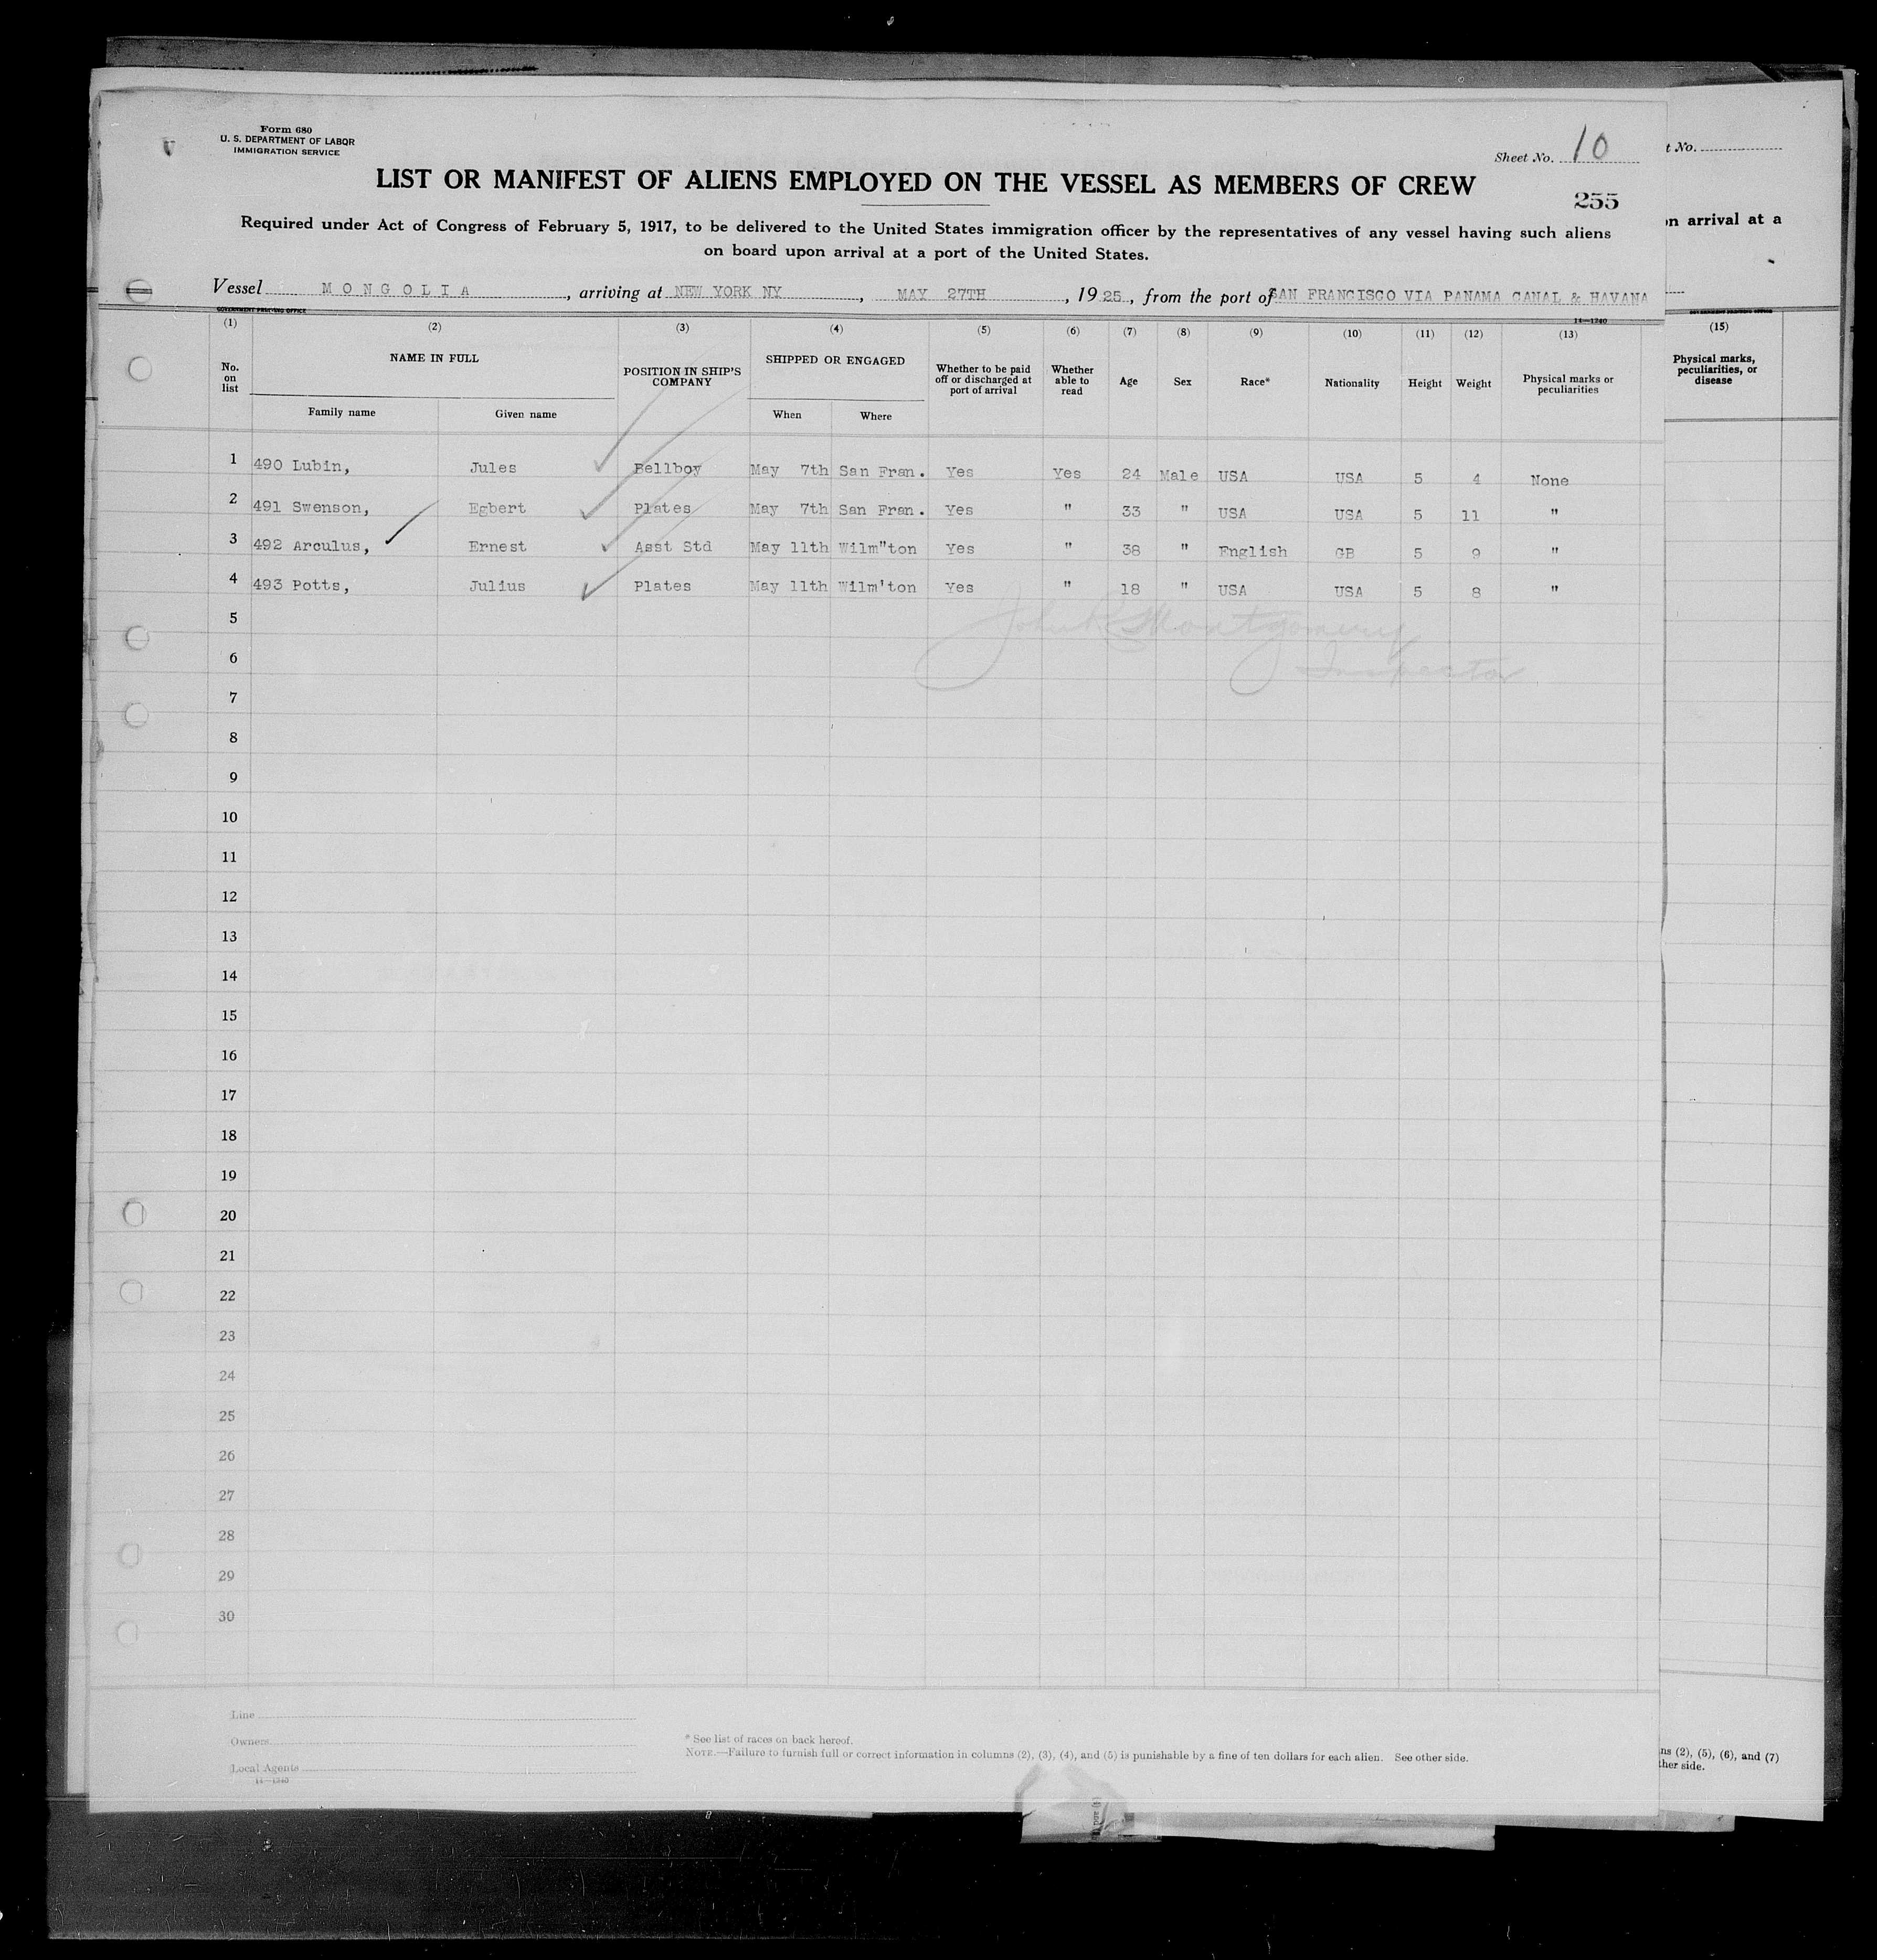 Form 680
U. S. DEPARTMENT OF LABOR
IMMIGRATION SERVICE
Sheet No. 10
t No.
LIST OR MANIFEST OF ALIENS EMPLOYED ON THE VESSEL AS MEMBERS OF CREW
255
Required under Act of Congress of February 5, 1917, to be delivered to the United States immigration officer by the representatives of any vessel having such aliens
on board upon arrival at a port of the United States.
on arrival at a
Vessel MONGOLIA, arriving at NEW YORK NY, MAY 27TH, 1925, from the port of SAN FRANCISCO VIA PANAMA CANAL & HAVANA
GOVERNMENT PRINTING OFFICE 14—1240
(1) (2) (3) (4) (5) (6) (7) (8) (9) (10) (11) (12) (13) (15)
No. on list NAME IN FULL POSITION IN SHIP'S COMPANY SHIPPED OR ENGAGED Whether to be paid off or discharged at port of arrival Whether able to read Age Sex Race* Nationality Height Weight Physical marks or peculiarities Physical marks, peculiarities, or disease
Family name Given name When Where
1 490 Lubin, Jules Bellboy May 7th San Fran. Yes Yes 24 Male USA USA 5 4 None
2 491 Swenson, Egbert Plates May 7th San Fran. Yes " 33 " USA USA 5 11 "
3 492 Arculus, Ernest Asst Std May 11th Wilm"ton Yes " 38 " English GB 5 9 "
4 493 Potts, Julius Plates May 11th Wilm'ton Yes " 18 " USA USA 5 8 "
5
John R Montgomery
6
Inspector
7
8
9
10
11
12
13
14
15
16
17
18
19
20
21
22
23
24
25
26
27
28
29
30
Line
Owners
Local Agents
14—1240
* See list of races on back hereof.
NOTE.—Failure to furnish full or correct information in columns (2), (3), (4), and (5) is punishable by a fine of ten dollars for each alien. See other side.
ns (2), (5), (6), and (7)
ther side.